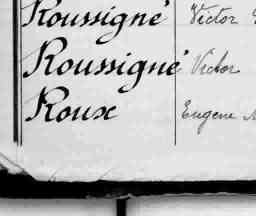 Roussigné Victor
Roussigné Victor
Roux Eugene